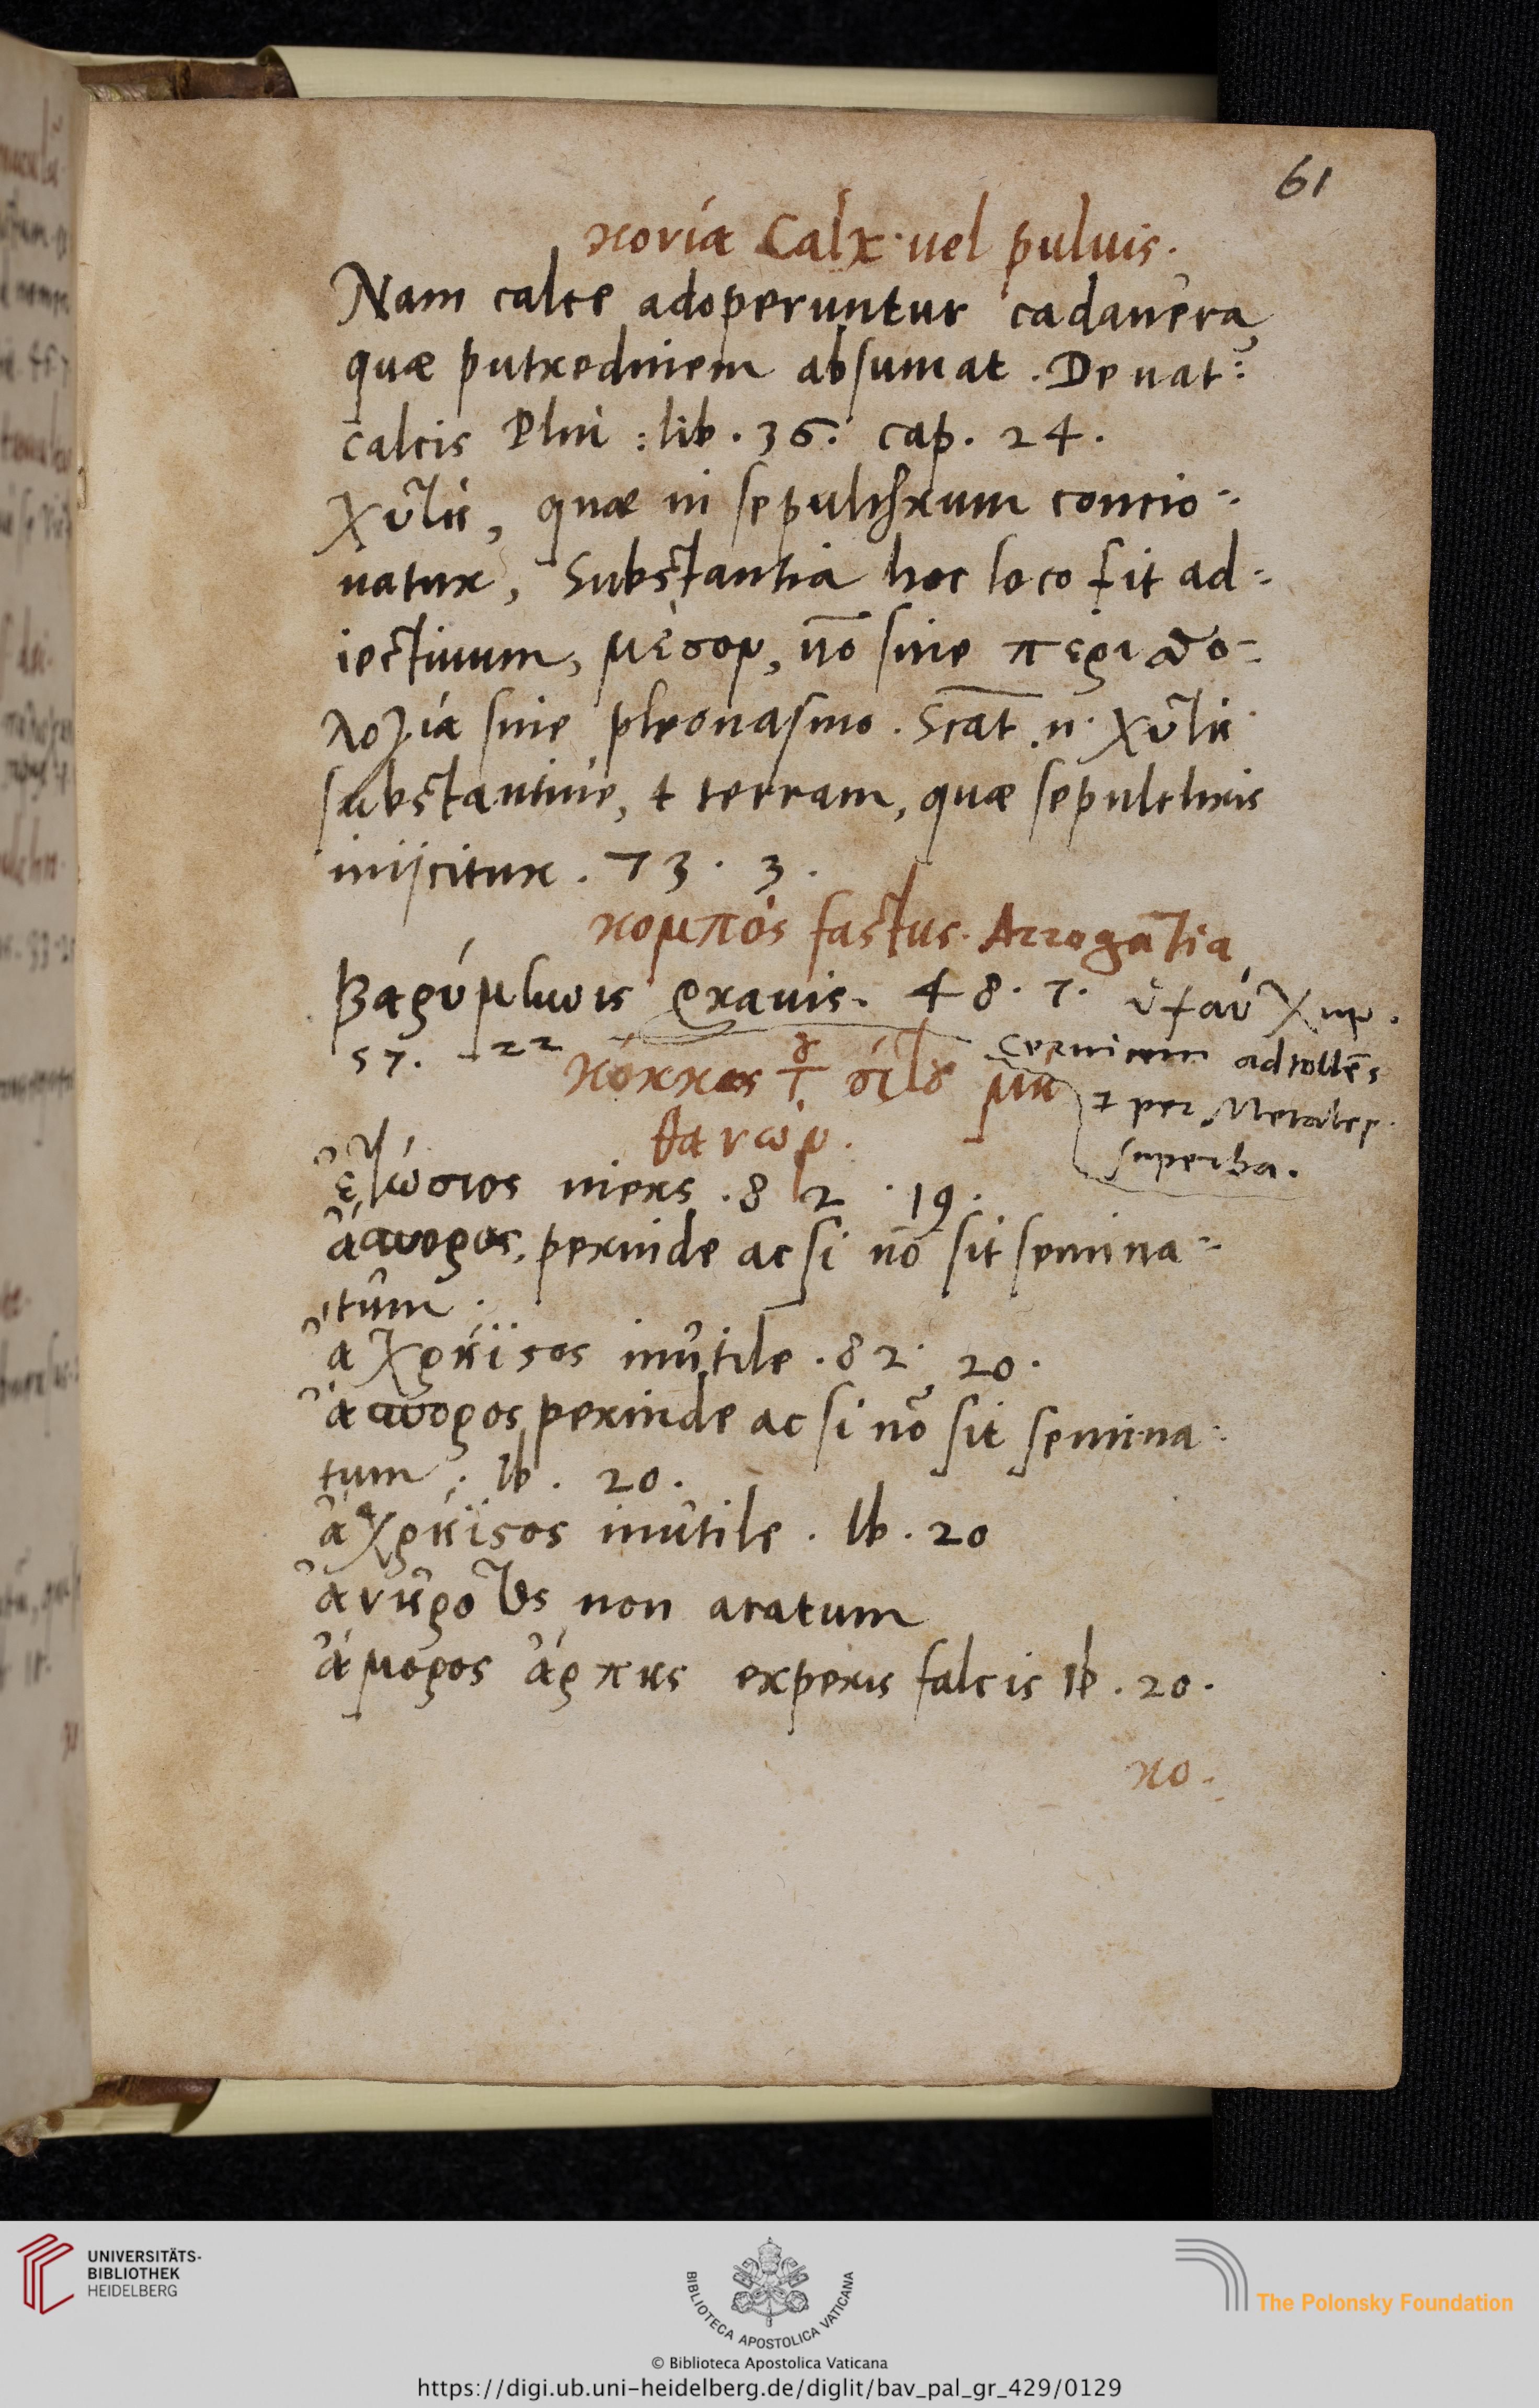 61
κονία Calx · uel puluis.
Nam calce adoperuntur cadauera,
quæ putredinem absumat. De nat:
calcis Plini: lib. 36. cap. 24.
χυτὴ, quæ in sepulchrum concio=
natur, Substantia hoc loco fit ad=
iectiuum, μέσον, nō sine περισσο=
λογία sine pleonasmo. Scat. n. χυτὴ
substantiue, terram, quæ sepulchris
iniicitur. 73. 3.
κομπὸς fastus. Arrogātia
Βαρύμηνις grauis. 48. 7. ὑψαύχην.
57. 22 ceruicem adtollēs
κόκκος σίτου μὴ
per Metalep.
θανών. superba.
ἐτώσιος iners. 82. 19.
ἄσπορος, perinde ac si nō sit semina=
tum.
ἀχρήϊστος inutile. 82. 20.
ἄσπορος perinde ac si nō sit semina=
tum. Ib. 20.
ἀχρήϊστος inutile. Ib. 20
ἀνήροτος non aratum
ἄμορος ἅρπης expers falcis Ib. 20.
κο.
UNIVERSITÄTS-
BIBLIOTHEK
HEIDELBERG
BIBLIOTECA APOSTOLICA VATICANA
The Polonsky Foundation
© Biblioteca Apostolica Vaticana
https://digi.ub.uni-heidelberg.de/diglit/bav_pal_gr_429/0129